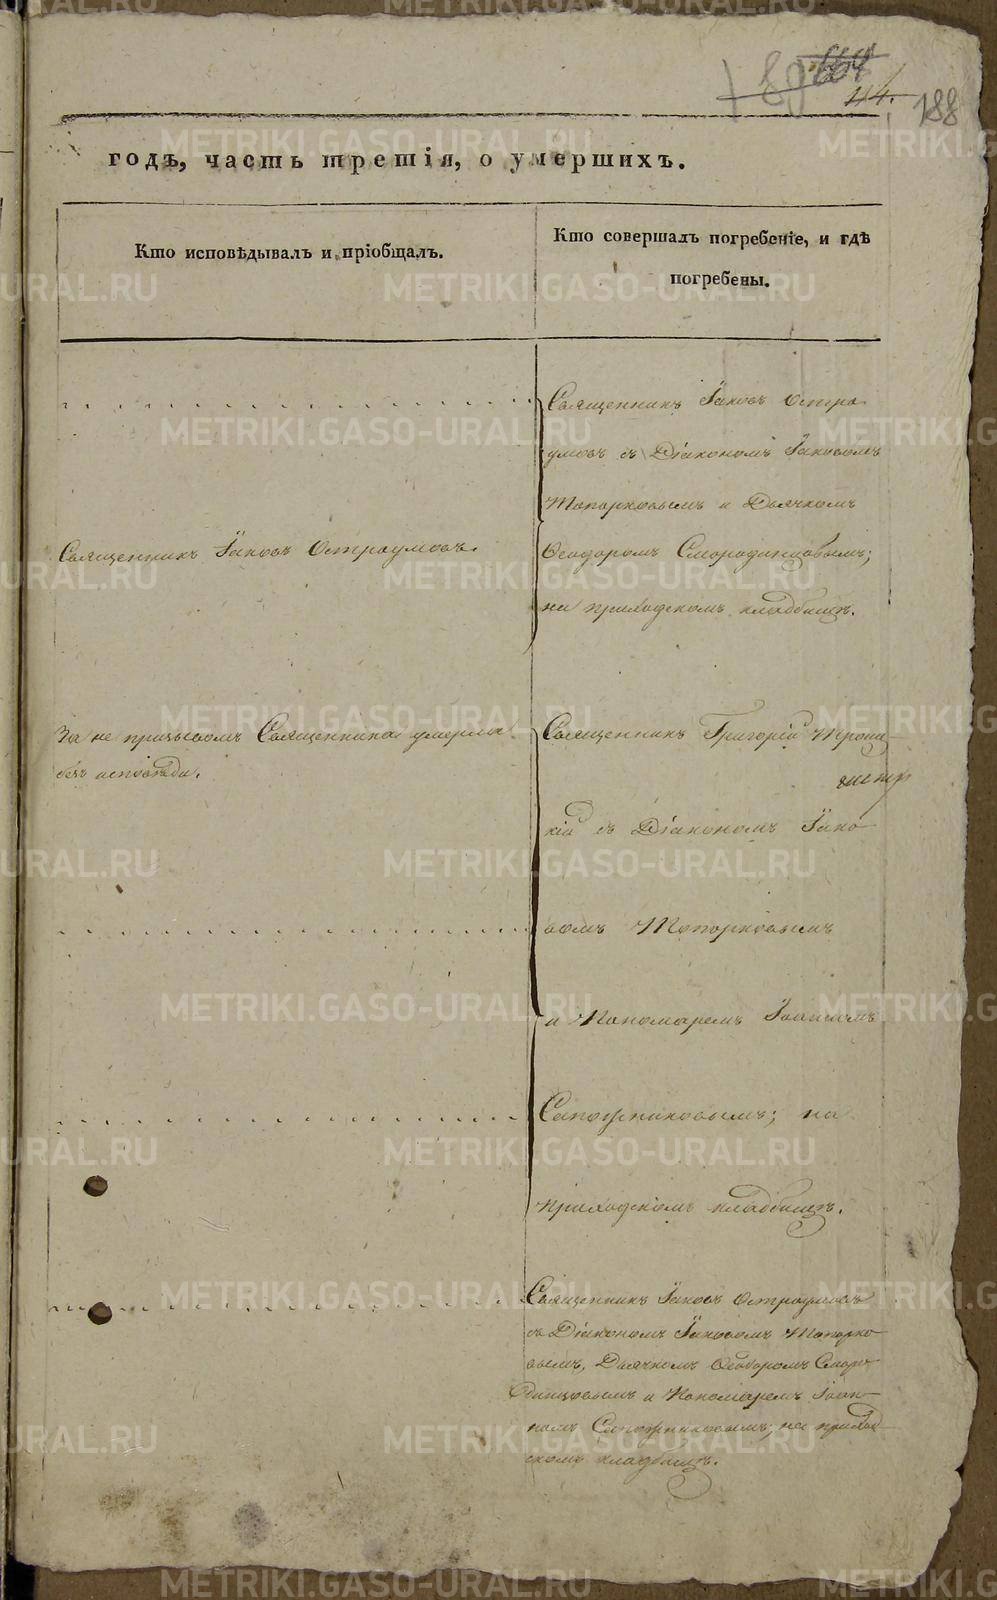 664
189
114.
188
годъ, часть третія, о умершихъ.
Кто исповѣдывалъ и пріобщалъ.
Кто совершалъ погребеніе, и гдѣ
погребены.
Священникъ Іаковъ Остро
умовъ съ Діакономъ Іаковомъ
Топорковымъ и Дьячкомъ
Ѳеодоромъ Смородинцовымъ;
на приходскомъ кладбищѣ.
Священникъ Іаковъ Остроумовъ.
За не призывомъ Священника умерла
безъ исповѣди.
Священникъ Григорій
кій съ Діакономъ Іако
вомъ Топорковымъ
и Пономаремъ Іоанномъ
Сапожниковымъ; на
приходскомъ кладбищѣ.
Священникъ Іаковъ Остроумовъ
съ Діакономъ Іаковомъ Топорко
вымъ, Дьячкомъ Ѳеодоромъ Сморо
динцовымъ и Пономаремъ Іоан
номъ Сапожниковымъ; на приход
скомъ кладбищѣ.
METRIKI.GASO-URAL.RU